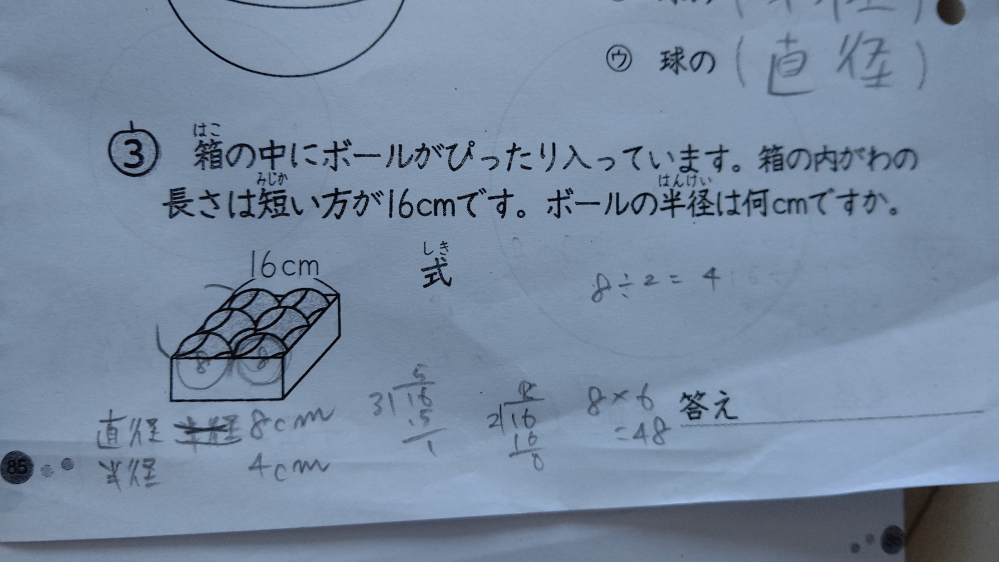 ㋒ 球の (直径)
③ 箱の中にボールがぴったり入っています。箱の内がわの
長さは短い方が16cmです。ボールの半径は何cmですか。
はこ
みじか
はんけい
16cm
しき
式
8÷2=4
8 8
直径 半径 8cm
半径 4cm
5
3)16
15
1
2)16
16
0
8×6
=48
答え
85